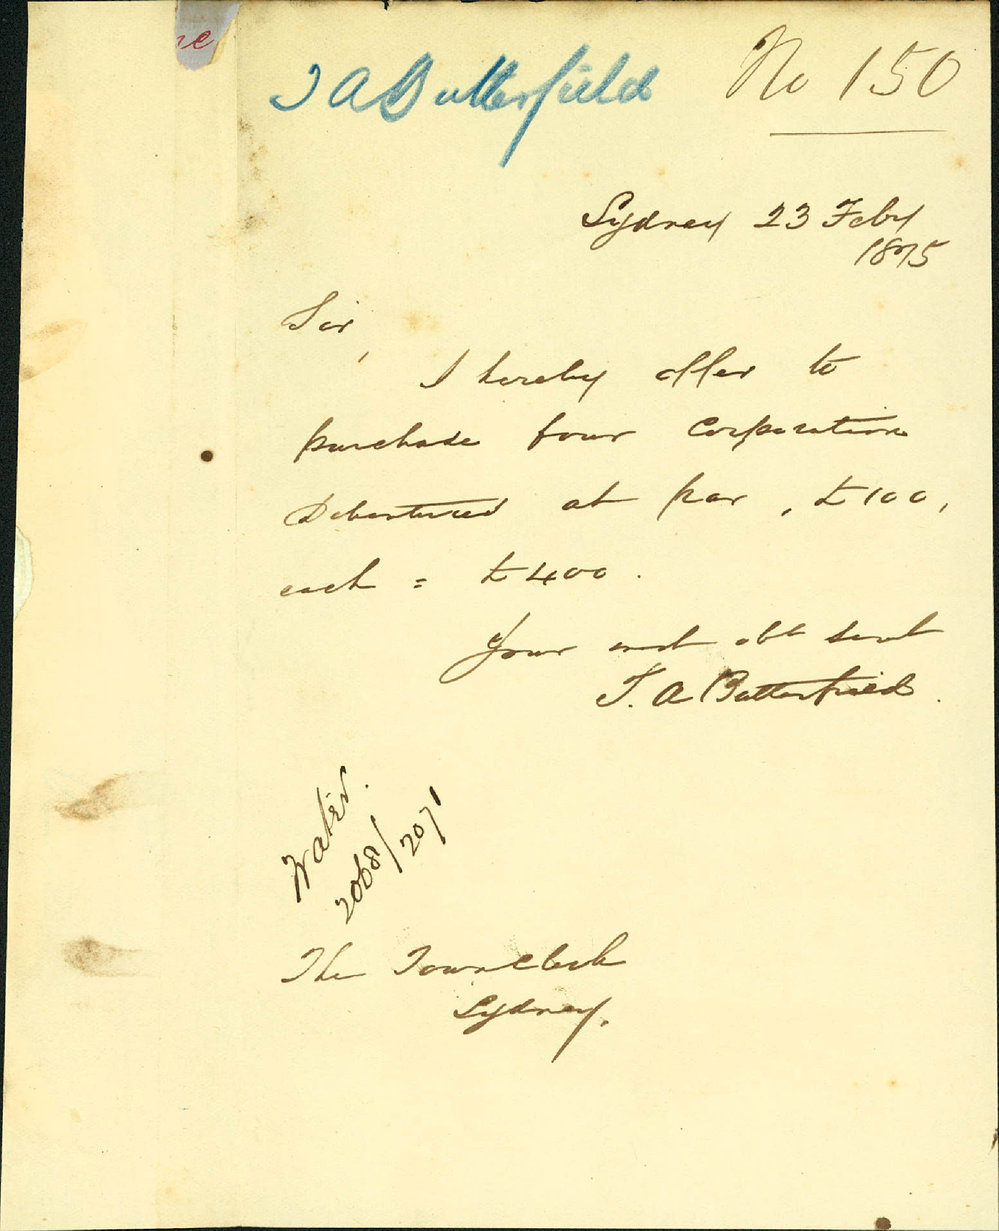 re
T A Butterfield
No 150
Sydney 23 Feby
1875
Sir,
I hereby offer to
purchase four Corporation
Debentures at par, £100,
each = £400.
Your most obt servt
T. A Butterfield.
Water.
2068/2071
The Town Clerk
Sydney.